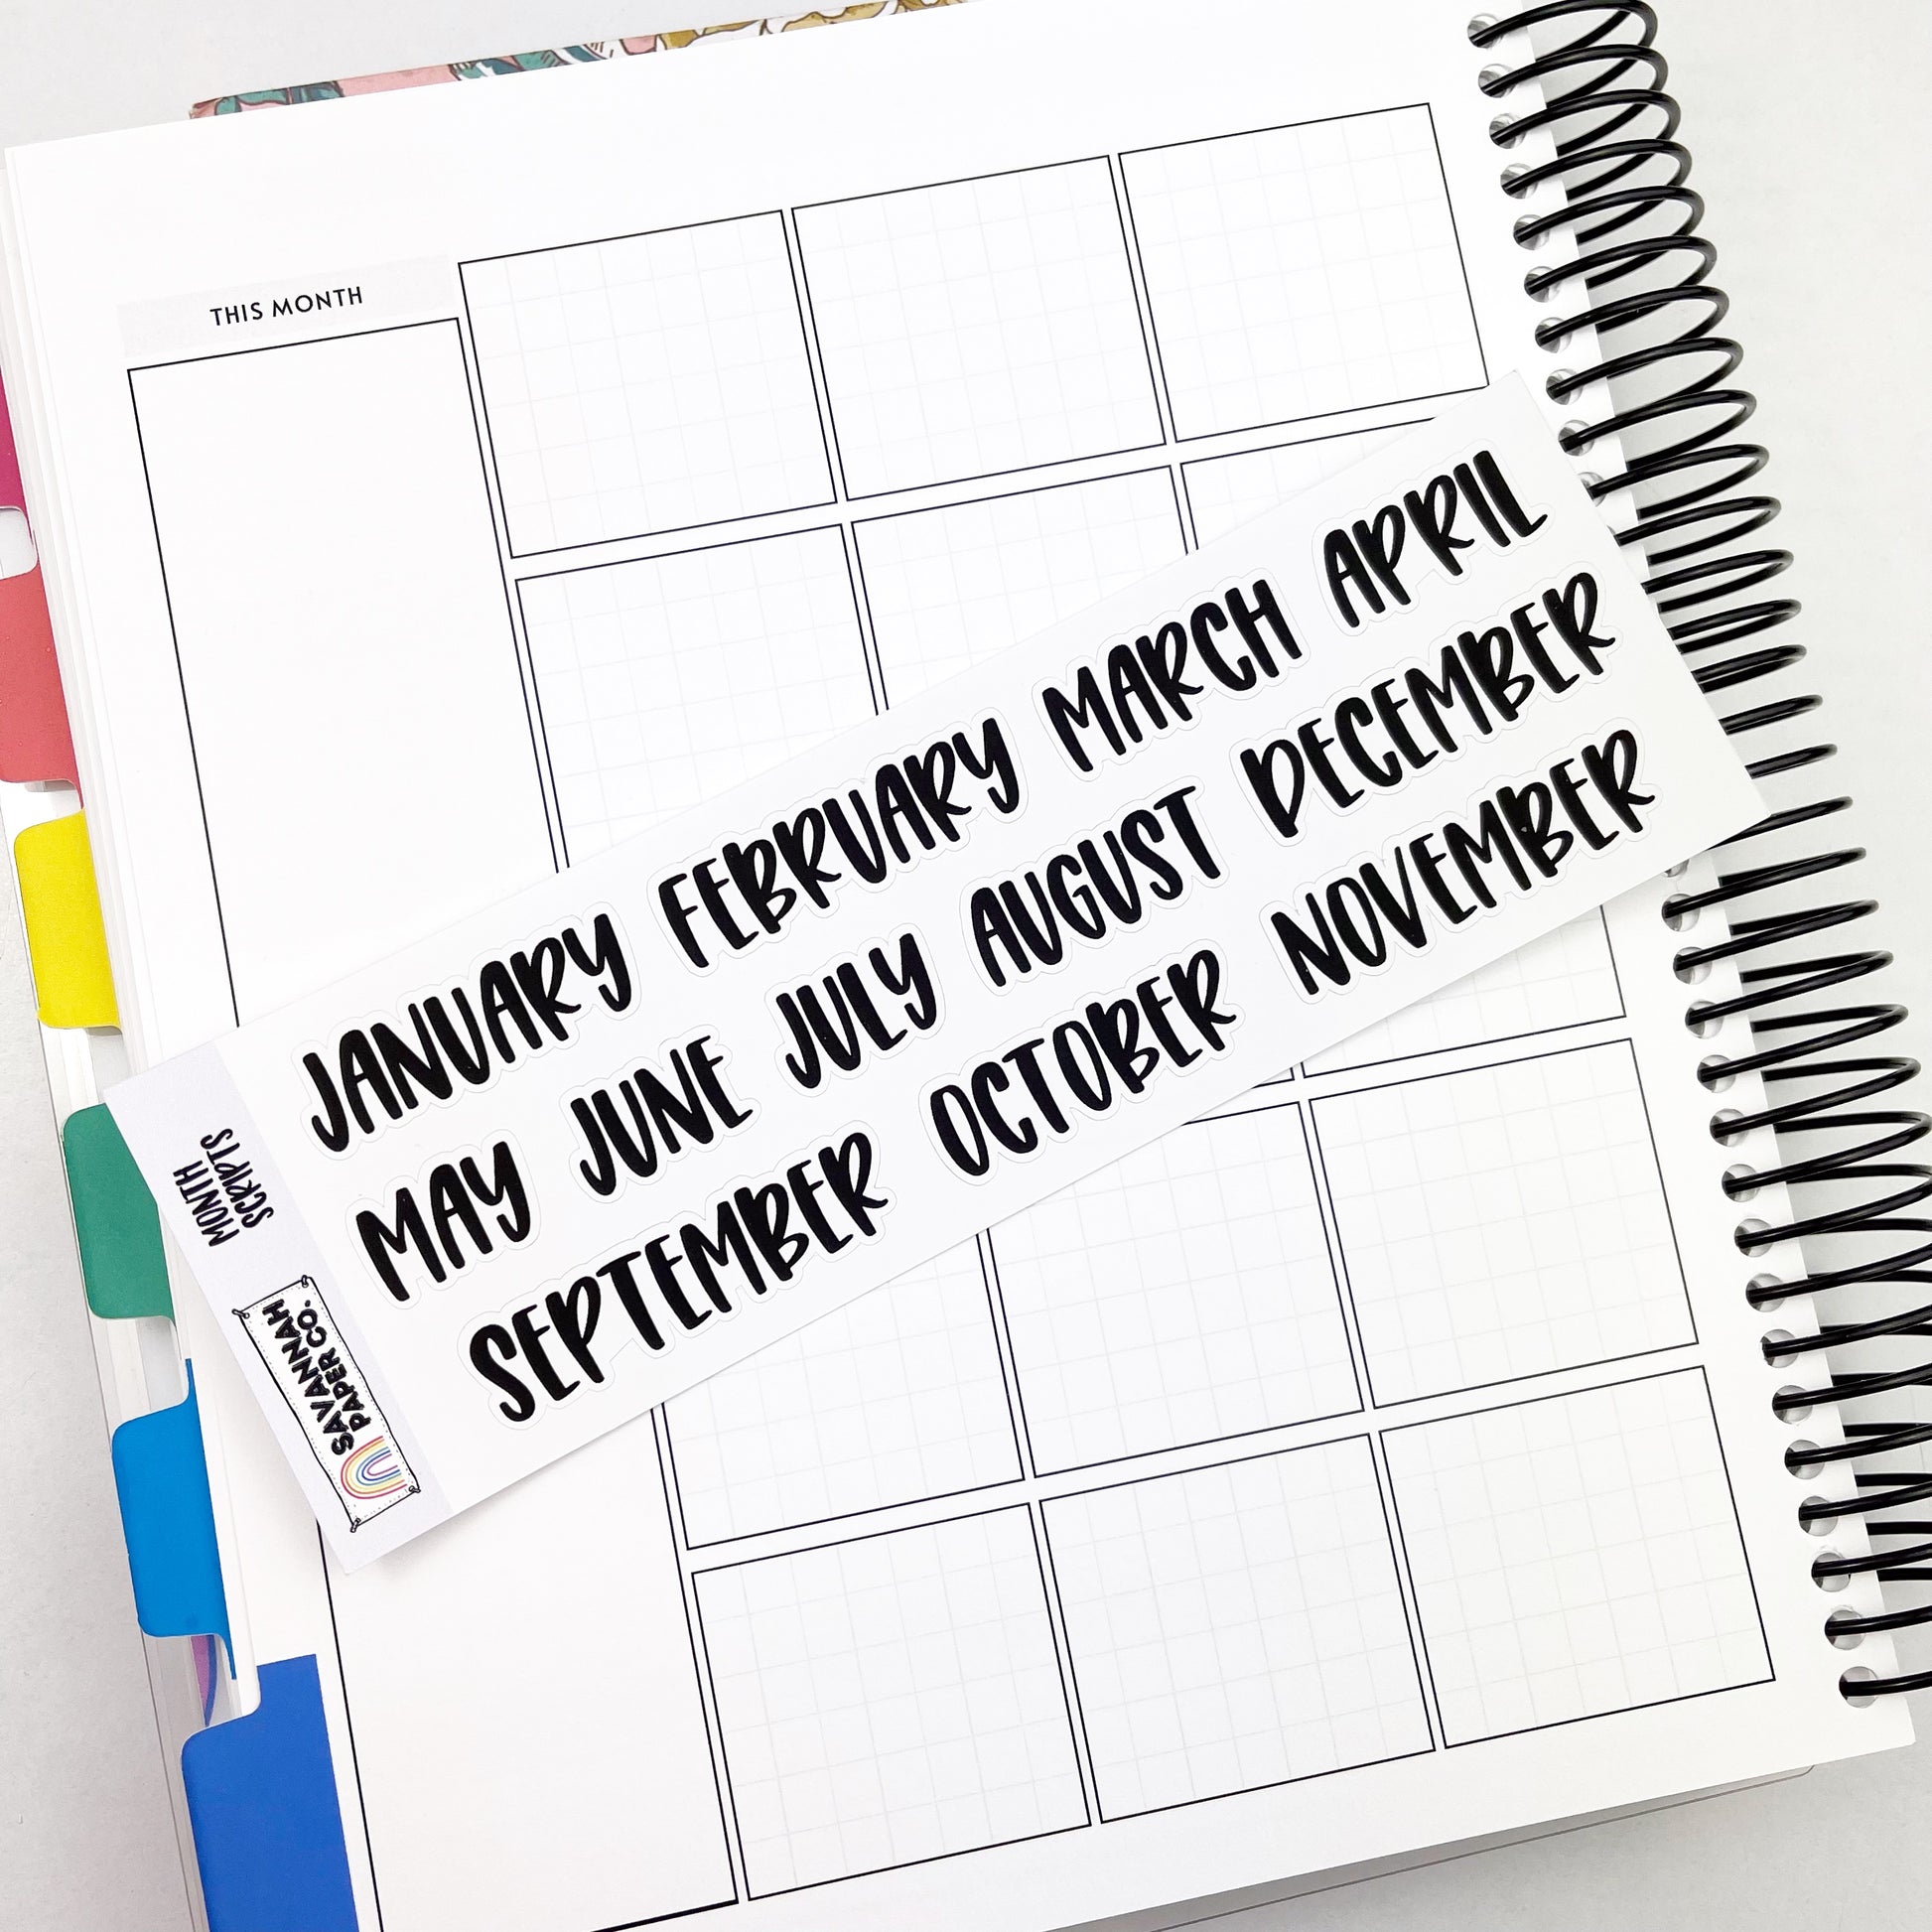 THIS MONTH
JANUARY FEBRUARY MARCH APRIL
MAY JUNE JULY AUGUST DECEMBER
SEPTEMBER OCTOBER NOVEMBER
MONTH
SCRIPTS
SAVANNAH
PAPER CO.